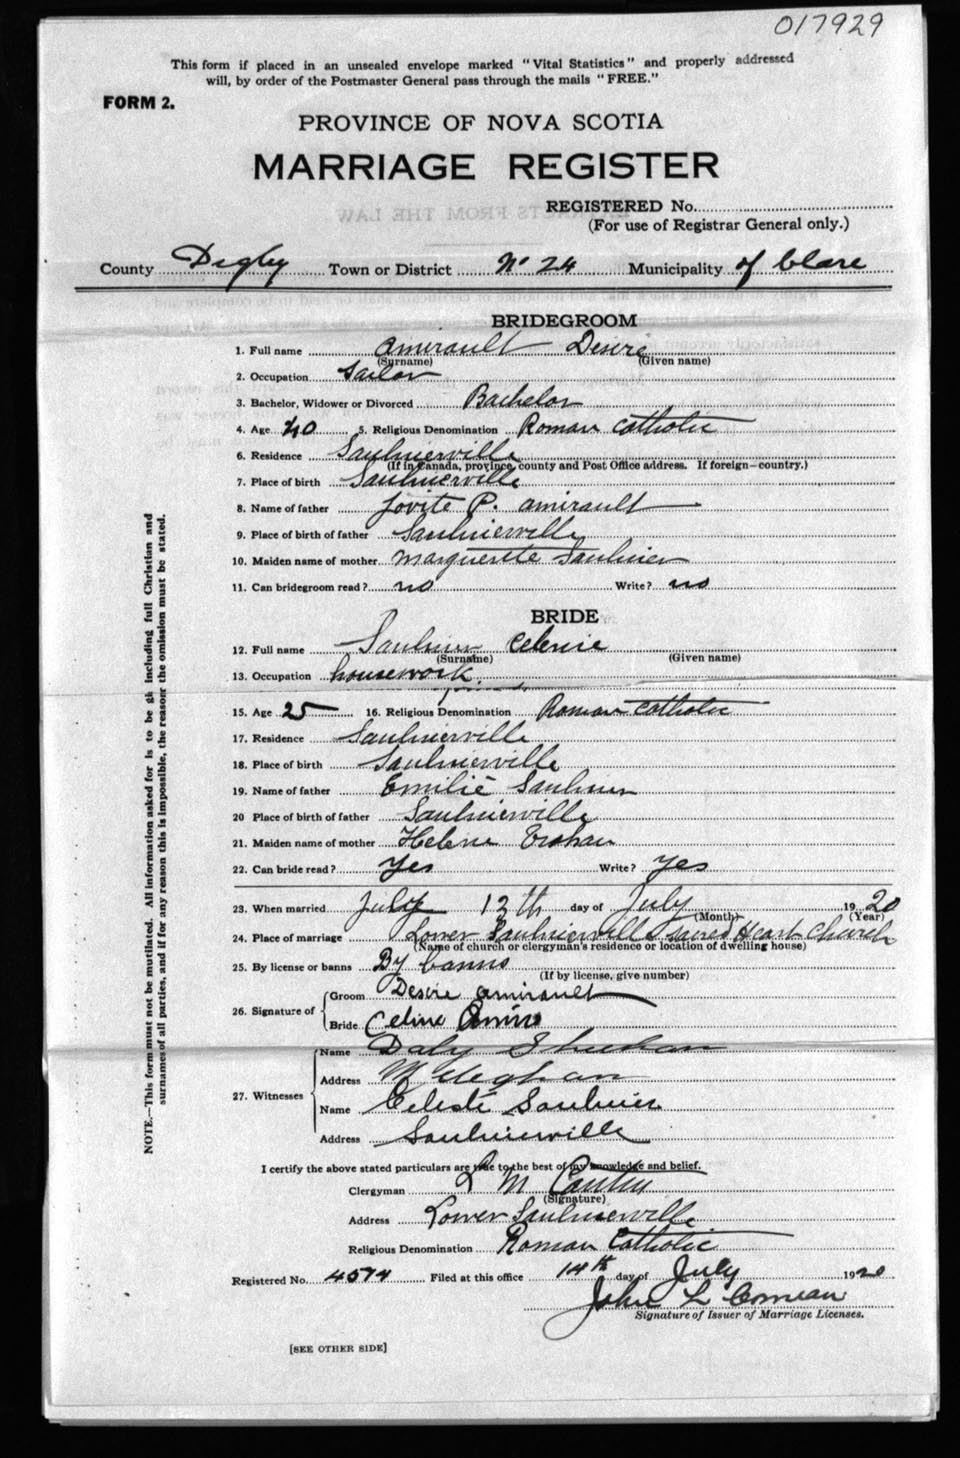 017929
This form if placed in an unsealed envelope marked "Vital Statistics" and properly addressed
will, by order of the Postmaster General pass through the mails "FREE."
FORM 2.
PROVINCE OF NOVA SCOTIA
MARRIAGE REGISTER
REGISTERED No.
(For use of Registrar General only.)
County Digby Town or District No 24 Municipality of Clare
BRIDEGROOM
1. Full name Amirault Desire
(Surname) (Given name)
2. Occupation Sailor
3. Bachelor, Widower or Divorced Bachelor
4. Age 40 5. Religious Denomination Roman Catholic
6. Residence Saulnierville
(If in Canada, province, county and Post Office address. If foreign—country.)
7. Place of birth Saulnierville
8. Name of father Jovite P. Amirault
9. Place of birth of father Saulnierville
10. Maiden name of mother Marguerite Saulnier
11. Can bridegroom read? no Write? no
BRIDE
12. Full name Saulnier Celenie
(Surname) (Given name)
13. Occupation housework
15. Age 25 16. Religious Denomination Roman Catholic
17. Residence Saulnierville
18. Place of birth Saulnierville
19. Name of father Emilie Saulnier
20 Place of birth of father Saulnierville
21. Maiden name of mother Helene Trahan
22. Can bride read? Yes Write? Yes
23. When married July 12th day of July 1920
(Month) (Year)
24. Place of marriage Lower Saulnierville Sacred Heart Church
(Name of church or clergyman's residence or location of dwelling house)
25. By license or banns By banns
(If by license, give number)
26. Signature of Groom Desire Amirault
Bride Celine
27. Witnesses Name Daly
Address Meteghan
Name Celeste Saulnier
Address Saulnierville
I certify the above stated particulars are true to the best of my knowledge and belief.
Clergyman L M
(Signature)
Address Lower Saulnierville
Religious Denomination Roman Catholic
Registered No. 4574 Filed at this office 14th day of July 1920
John L Comeau
Signature of Issuer of Marriage Licenses.
[SEE OTHER SIDE]
NOTE.—This form must not be mutilated. All information asked for is to be including full Christian and
surnames of all parties, and if for any reason this is impossible, the reason the omission must be stated.